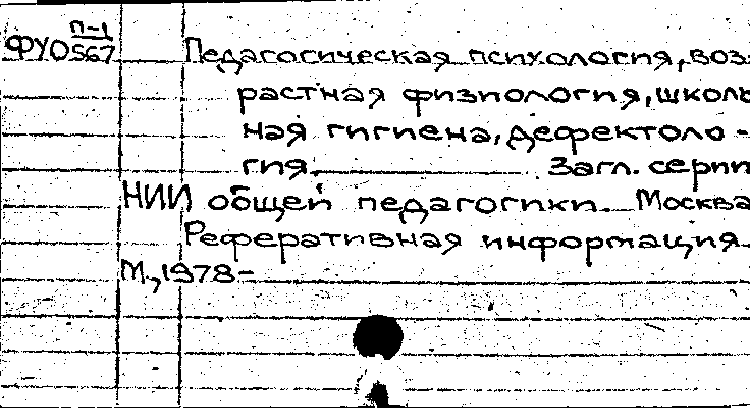 П-1
ФУО567
Педагогическая психология, воз-
растная физиология, школь
ная гигиена, дефектоло-
гия. Загл. серии
НИИ общей педагогики. Москва
Реферативная информация.
М., 1978-